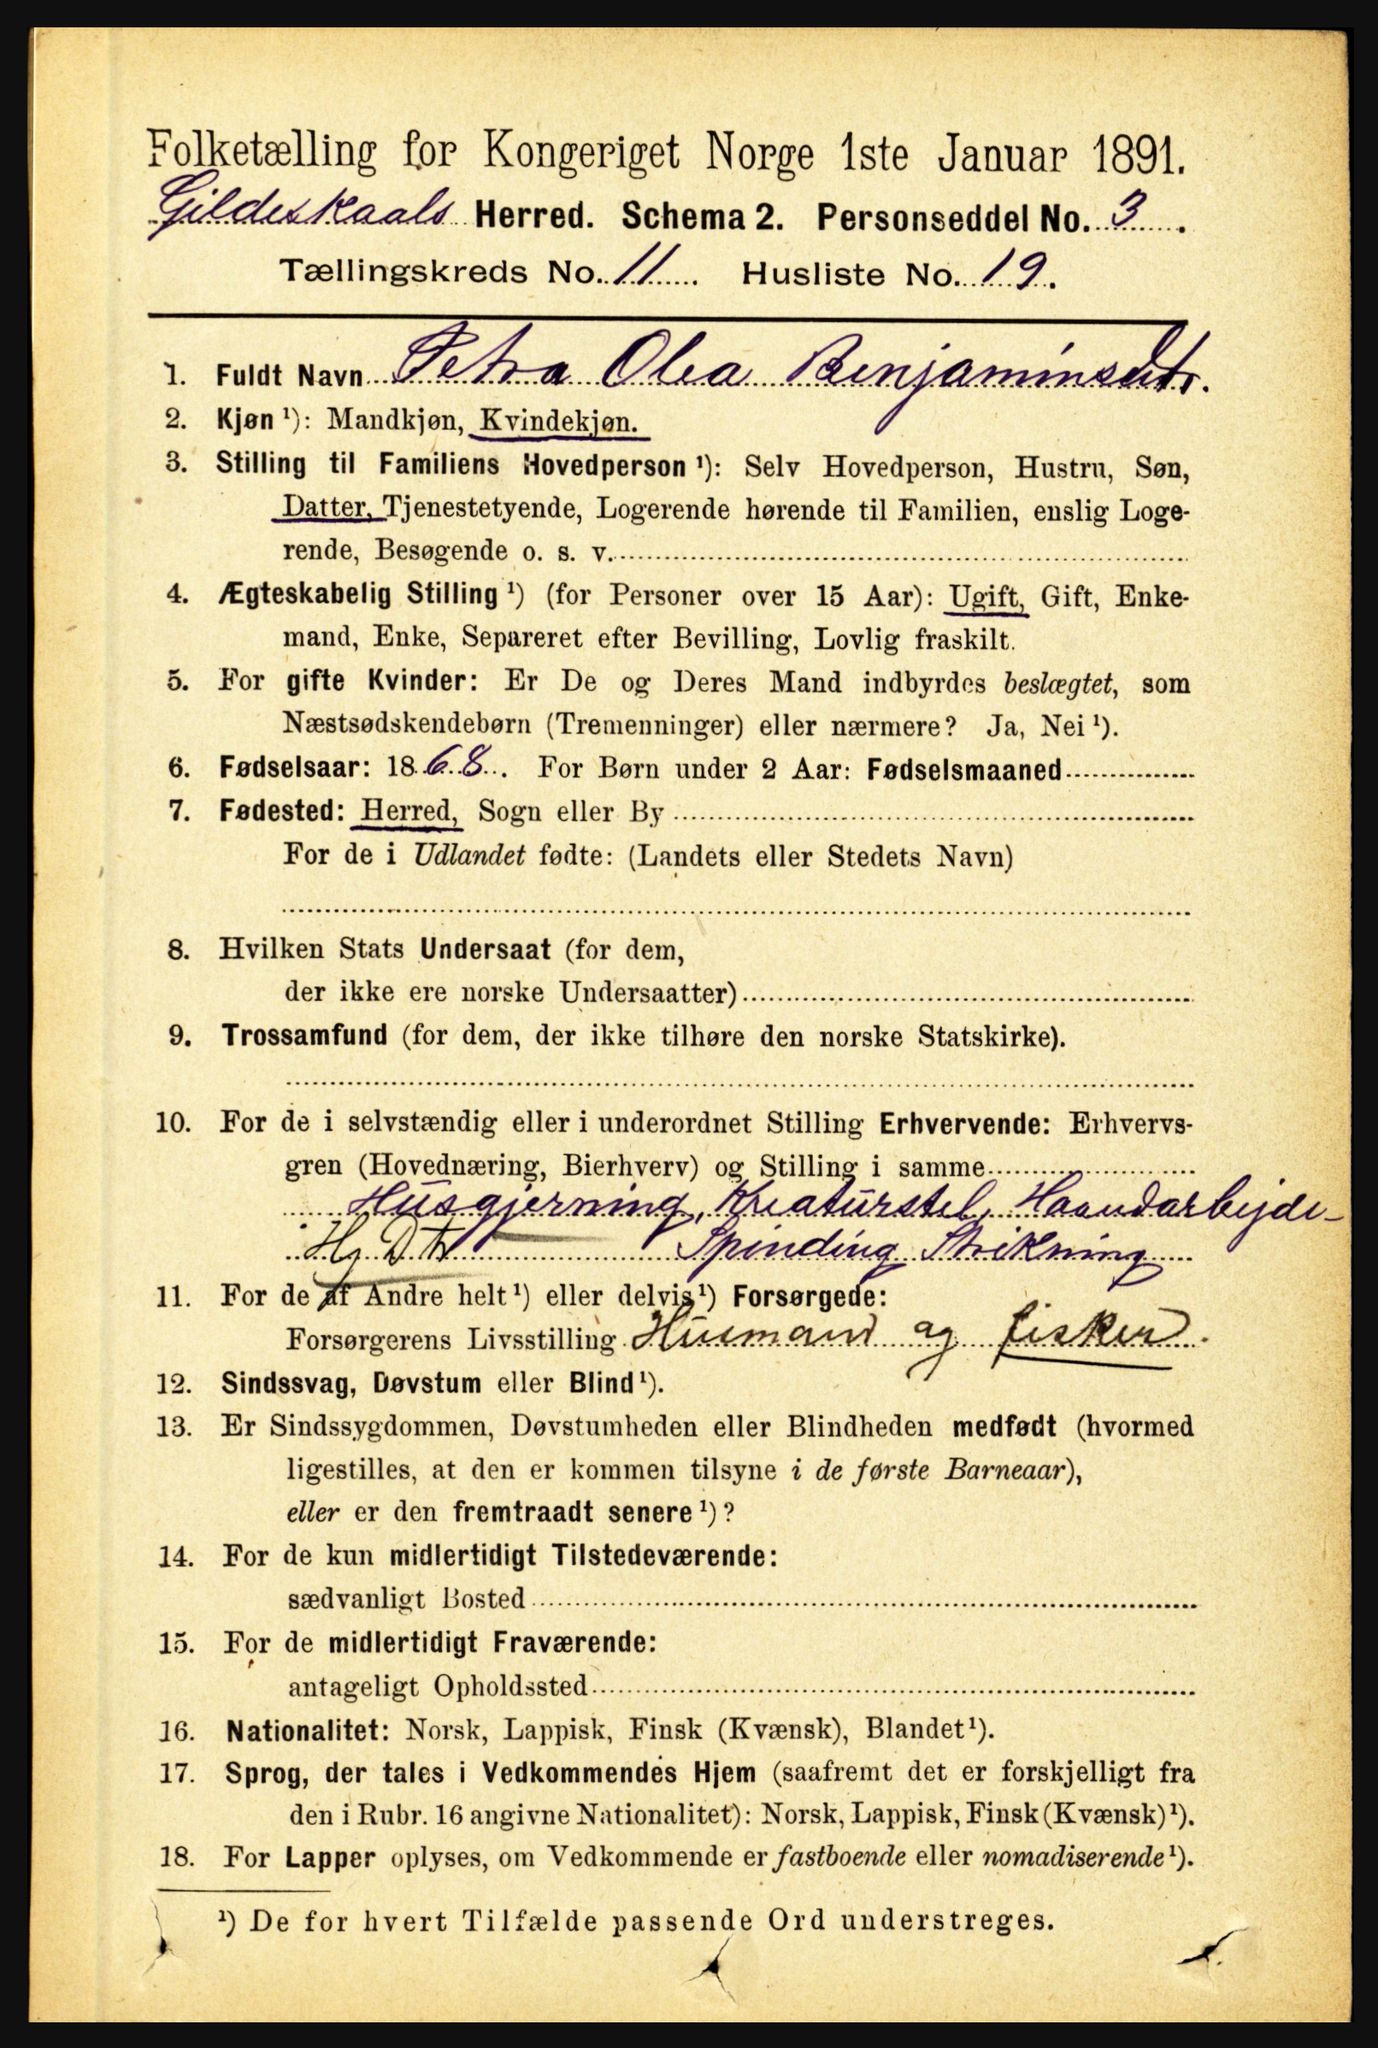 Folketælling for Kongeriget Norge 1ste Januar 1891.
Gildeskaals Herred. Schema 2. Personseddel No. 3.
Tællingskreds No. 11 Husliste No. 19.
1. Fuldt Navn Petra Olea Benjaminsdtr.
2. Kjøn ¹): Mandkjøn, Kvindekjøn.
3. Stilling til Familiens Hovedperson ¹): Selv Hovedperson, Hustru, Søn,
Datter, Tjenestetyende, Logerende hørende til Familien, enslig Loge-
rende, Besøgende o. s. v.
4. Ægteskabelig Stilling ¹) (for Personer over 15 Aar): Ugift, Gift, Enke-
mand, Enke, Separeret efter Bevilling, Lovlig fraskilt.
5. For gifte Kvinder: Er De og Deres Mand indbyrdes beslægtet, som
Næstsødskendebørn (Tremenninger) eller nærmere? Ja, Nei ¹).
6. Fødselsaar: 1868. For Børn under 2 Aar: Fødselsmaaned
7. Fødested: Herred, Sogn eller By
For de i Udlandet fødte: (Landets eller Stedets Navn)
8. Hvilken Stats Undersaat (for dem,
der ikke ere norske Undersaatter)
9. Trossamfund (for dem, der ikke tilhøre den norske Statskirke).
10. For de i selvstændig eller i underordnet Stilling Erhvervende: Erhvervs-
gren (Hovednæring, Bierhverv) og Stilling i samme
Husgjerning, Kreaturstel, Haandarbejde-
Hg Dtr Spinding Strikning
11. For de af Andre helt ¹) eller delvis ¹) Forsørgede:
Forsørgerens Livsstilling Husmand og fisker.
12. Sindssvag, Døvstum eller Blind ¹).
13. Er Sindssygdommen, Døvstumheden eller Blindheden medfødt (hvormed
ligestilles, at den er kommen tilsyne i de første Barneaar),
eller er den fremtraadt senere ¹)?
14. For de kun midlertidigt Tilstedeværende:
sædvanligt Bosted
15. For de midlertidigt Fraværende:
antageligt Opholdssted
16. Nationalitet: Norsk, Lappisk, Finsk (Kvænsk), Blandet ¹).
17. Sprog, der tales i Vedkommendes Hjem (saafremt det er forskjelligt fra
den i Rubr. 16 angivne Nationalitet): Norsk, Lappisk, Finsk (Kvænsk) ¹).
18. For Lapper oplyses, om Vedkommende er fastboende eller nomadiserende ¹).
¹) De for hvert Tilfælde passende Ord understreges.